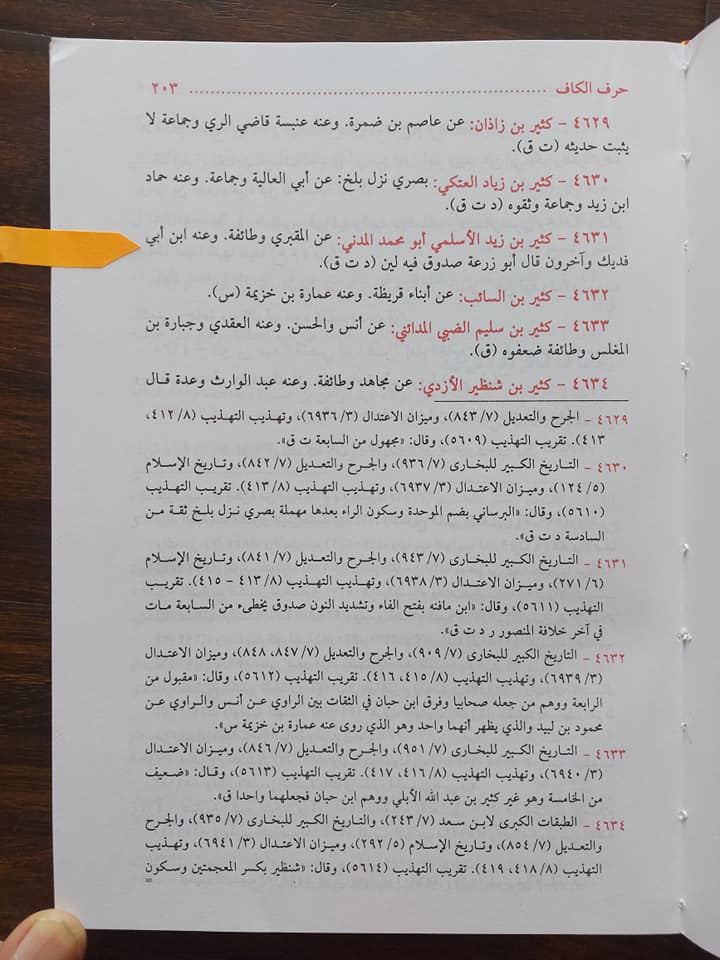 حرف الكاف ............................................................ ٢٠٣
٤٦٢٩ - كثير بن زاذان: عن عاصم بن ضمرة. وعنه عنبسة قاضي الري وجماعة لا
يثبت حديثه (ت ق).
٤٦٣٠ - كثير بن زياد العتكي: بصري نزل بلخ: عن أبي العالية وجماعة. وعنه حماد
ابن زيد وجماعة وثقوه (د ت ق).
٤٦٣١ - كثير بن زيد الأسلمي أبو محمد المدني: عن المقبري وطائفة. وعنه ابن أبي
فديك وآخرون قال أبو زرعة صدوق فيه لين (د ت ق).
٤٦٣٢ - كثير بن السائب: عن أبناء قريظة. وعنه عمارة بن خزيمة (س).
٤٦٣٣ - كثير بن سليم الضبي المدائني: عن أنس والحسن. وعنه العقدي وجبارة بن
المغلس وطائفة ضعفوه (ق).
٤٦٣٤ - كثير بن شنظير الأزدي: عن مجاهد وطائفة. وعنه عبد الوارث وعدة قال
٤٦٢٩ - الجرح والتعديل (٨٤٣/٧)، وميزان الاعتدال (٦٩٣٦/٣)، وتهذيب التهذيب (٤١٢/٨،
٤١٣). تقريب التهذيب (٥٦٠٩)، وقال: «مجهول من السابعة ت ق».
٤٦٣٠ - التاريخ الكبير للبخارى (٩٣٦/٧)، والجرح والتعديل (٨٤٢/٧)، وتاريخ الإسلام
(١٢٤/٥)، وميزان الاعتدال (٦٩٣٧/٣)، وتهذيب التهذيب (٤١٣/٨). تقريب التهذيب
(٥٦١٠)، وقال: «البرساني بضم الموحدة وسكون الراء بعدها مهملة بصري نزل بلخ ثقة من
السادسة د ت ق».
٤٦٣١ - التاريخ الكبير للبخارى (٩٤٣/٧)، والجرح والتعديل (٨٤١/٧)، وتاريخ الإسلام
(٢٧١/٦)، وميزان الاعتدال (٦٩٣٨/٣)، وتهذيب التهذيب (٤١٣/٨ - ٤١٥). تقريب
التهذيب (٥٦١١)، وقال: «ابن مافنه بفتح الفاء وتشديد النون صدوق يخطىء من السابعة مات
في آخر خلافة المنصور ر د ت ق».
٤٦٣٢ - التاريخ الكبير للبخارى (٩٠٩/٧)، والجرح والتعديل (٨٤٧/٧، ٨٤٨، وميزان الاعتدال
(٦٩٣٩/٣)، وتهذيب التهذيب (٤١٥/٨، ٤١٦). تقريب التهذيب (٥٦١٢)، وقال: «مقبول من
الرابعة ووهم من جعله صحابيا وفرق ابن حبان في الثقات بين الراوي عن أنس والراوي عن
محمود بن لبيد والذي يظهر أنهما واحد وهو الذي روى عنه عمارة بن خزيمة س».
٤٦٣٣ - التاريخ الكبير للبخارى (٩٥١/٧)، والجرح والتعديل (٨٤٦/٧)، وميزان الاعتدال
(٦٩٤٠/٣)، وتهذيب التهذيب (٤١٦/٨، ٤١٧). تقريب التهذيب (٥٦١٣)، وقال: «ضعيف
من الخامسة وهو غير كثير بن عبد الله الأبلي ووهم ابن حبان فجعلهما واحدا ق».
٤٦٣٤ - الطبقات الكبرى لابن سعد (٢٤٣/٧)، والتاريخ الكبير للبخارى (٩٣٥/٧)، والجرح
والتعديل (٨٥٤/٧)، وتاريخ الإسلام (٢٩٢/٥)، وميزان الاعتدال (٦٩٤١/٣)، وتهذيب
التهذيب (٤١٨/٨، ٤١٩). تقريب التهذيب (٥٦١٤)، وقال: «شنظير بكسر المعجمتين وسكون
=